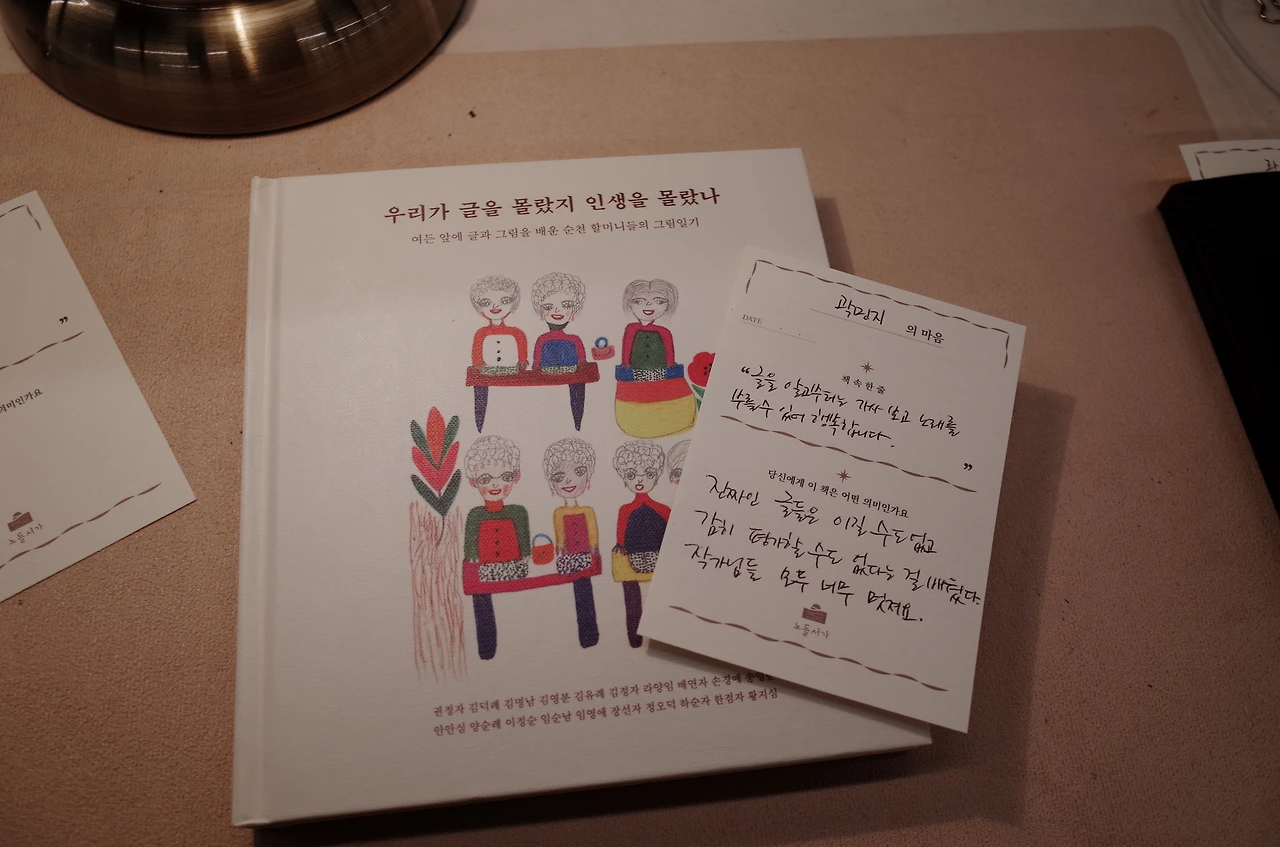 우리가 글을 몰랐지 인생을 몰랐나
여든 앞에 글과 그림을 배운 순천 할머니들의 그림일기
권정자 김덕례 김명남 김영분 김유례 김정자 라양임 배연자 손경애
안안심 양순례 이정순 임순남 임영애 장선자 정오덕 하순자 한점자 황지심
곽명지 의 마음
DATE . .
책 속 한 줄
“글을 알고부터는 가사 보고 노래를
부를 수 있어 행복합니다.
”
당신에게 이 책은 어떤 의미인가요
진짜인 글들은 이길 수도 없고
감히 평가할 수도 없다는 걸 깨쳤다.
작가님들 모두 너무 멋져요.
노들서가
”
의미인가요
노들서가